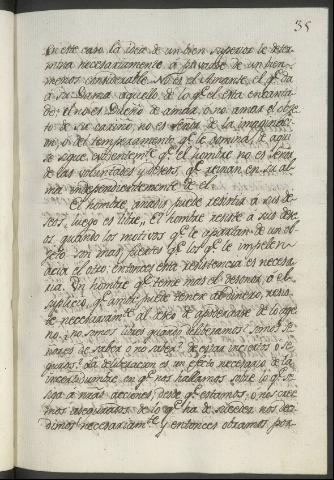 35
En este caso la idea de un bien superior le deter-
mina necesariamente á privarse de un bien
menos considerable. No es el Amante el q.e da
á su Dama aquello de lo q.e el esta encanta-
do; el no es Dueño de amar, ó no amar el obje-
to de su cariño, no es señor de la imaginaci-
on, ó del temperamento q.e le domina; de aqui
se sigue evidentem.te q.e el hombre no es señor
de las voluntades y deseos, q.e reynan en su al-
ma independientemente de el.
El hombre, añadis puede resistir a sus de-
seos, luego es libre. El hombre resiste á sus dese-
os, quando los motivos q.e le apartan de un ob-
jeto son mas fuertes q.e los q.e le impelen
acia el otro: entonces esta resistencia es necesa-
ria. Un hombre q.e teme mas el desonor, ó el
suplicio, q.e amor puede tener al dinero, resis-
te necesariam.te al deseo de apoderarse de lo age-
no. ¿no somos libres quando deliberamos? ¿somos se-
ñores de saber ó no saber? ¿de estar inciertos ó se-
guros? La deliberacion es un efecto necesario de la
incertidumbre, en q.e nos hallamos sobre lo q.e se
siga á nras acciones; desde q.e estamos, ó nos cree-
mos asegurados de lo q.e ha de suceder nos deci-
dimos necesariam.te y entonces obramos por-